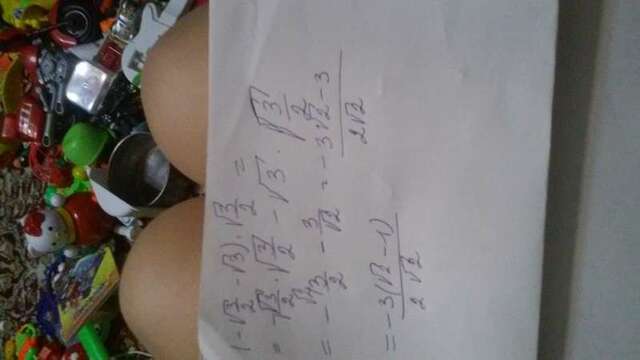 (-√3/2 - √3) · √3/2 =
= -√3/2 · √3/2 - √3 · √3/2
= - 3/2 - 3/√2 = -3√2-3/2√2
= -3(√2-1)/2√2